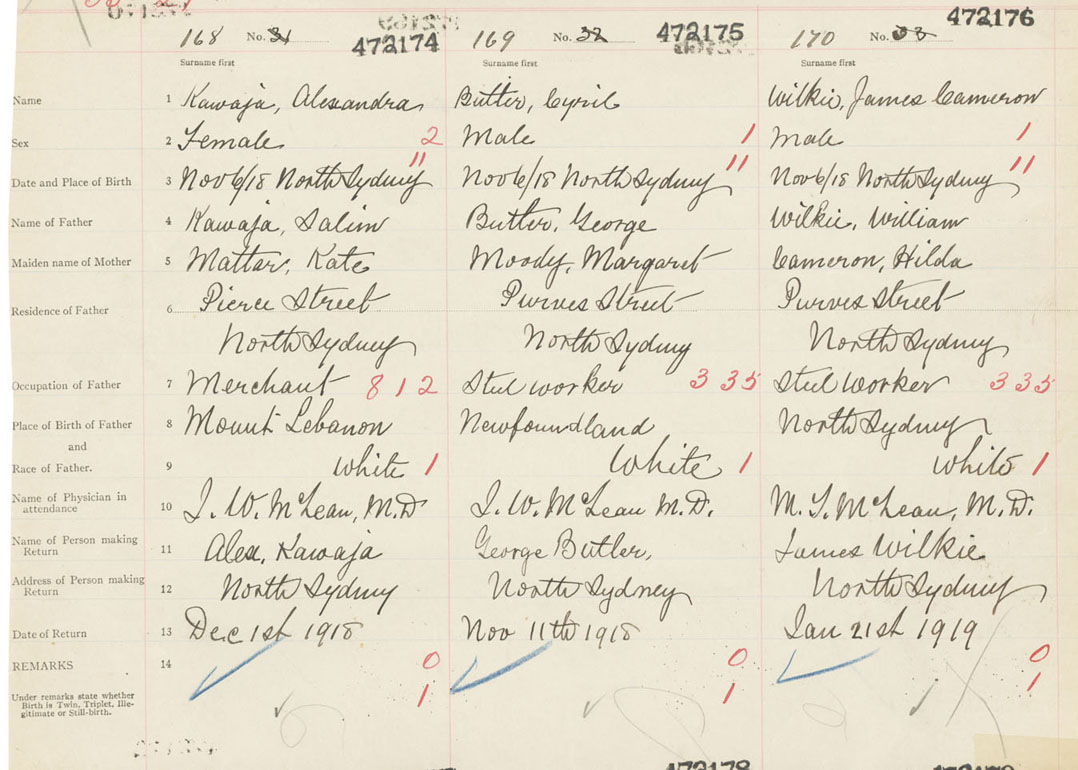 168 No. 31 472174 169 No. 32 472175 170 No. 33 472176
Surname first Surname first Surname first
Name 1 Kawaja, Alexandra Butler, Cyril Wilkie, James Cameron
Sex 2 Female 2 Male 1 Male 1
Date and Place of Birth 3 Nov 6/18 North Sydney 11 Nov 6/18 North Sydney 11 Nov 6/18 North Sydney 11
Name of Father 4 Kawaja, Salim Butler, George Wilkie, William
Maiden name of Mother 5 Mattar, Kate Moody, Margaret Cameron, Hilda
Residence of Father 6 Pierce Street Purves Street Purves Street
North Sydney North Sydney North Sydney
Occupation of Father 7 Merchant 8 1 2 Steel worker 3 3 5 Steel worker 3 3 5
Place of Birth of Father 8 Mount Lebanon Newfoundland North Sydney
and
Race of Father. 9 White 1 White 1 White 1
Name of Physician in
attendance 10 J. W. McLean, M.D J. W. McLean M.D. M. T. McLean, M.D.
Name of Person making
Return 11 Alex, Kawaja George Butler, James Wilkie
Address of Person making
Return 12 North Sydney North Sydney North Sydney
Date of Return 13 Dec 1st 1918 Nov 11th 1918 Jan 21st 1919
REMARKS 14 0 0 0
Under remarks state whether
Birth is Twin, Triplet, Ille-
gitimate or Still-birth. 1 1 1
472178